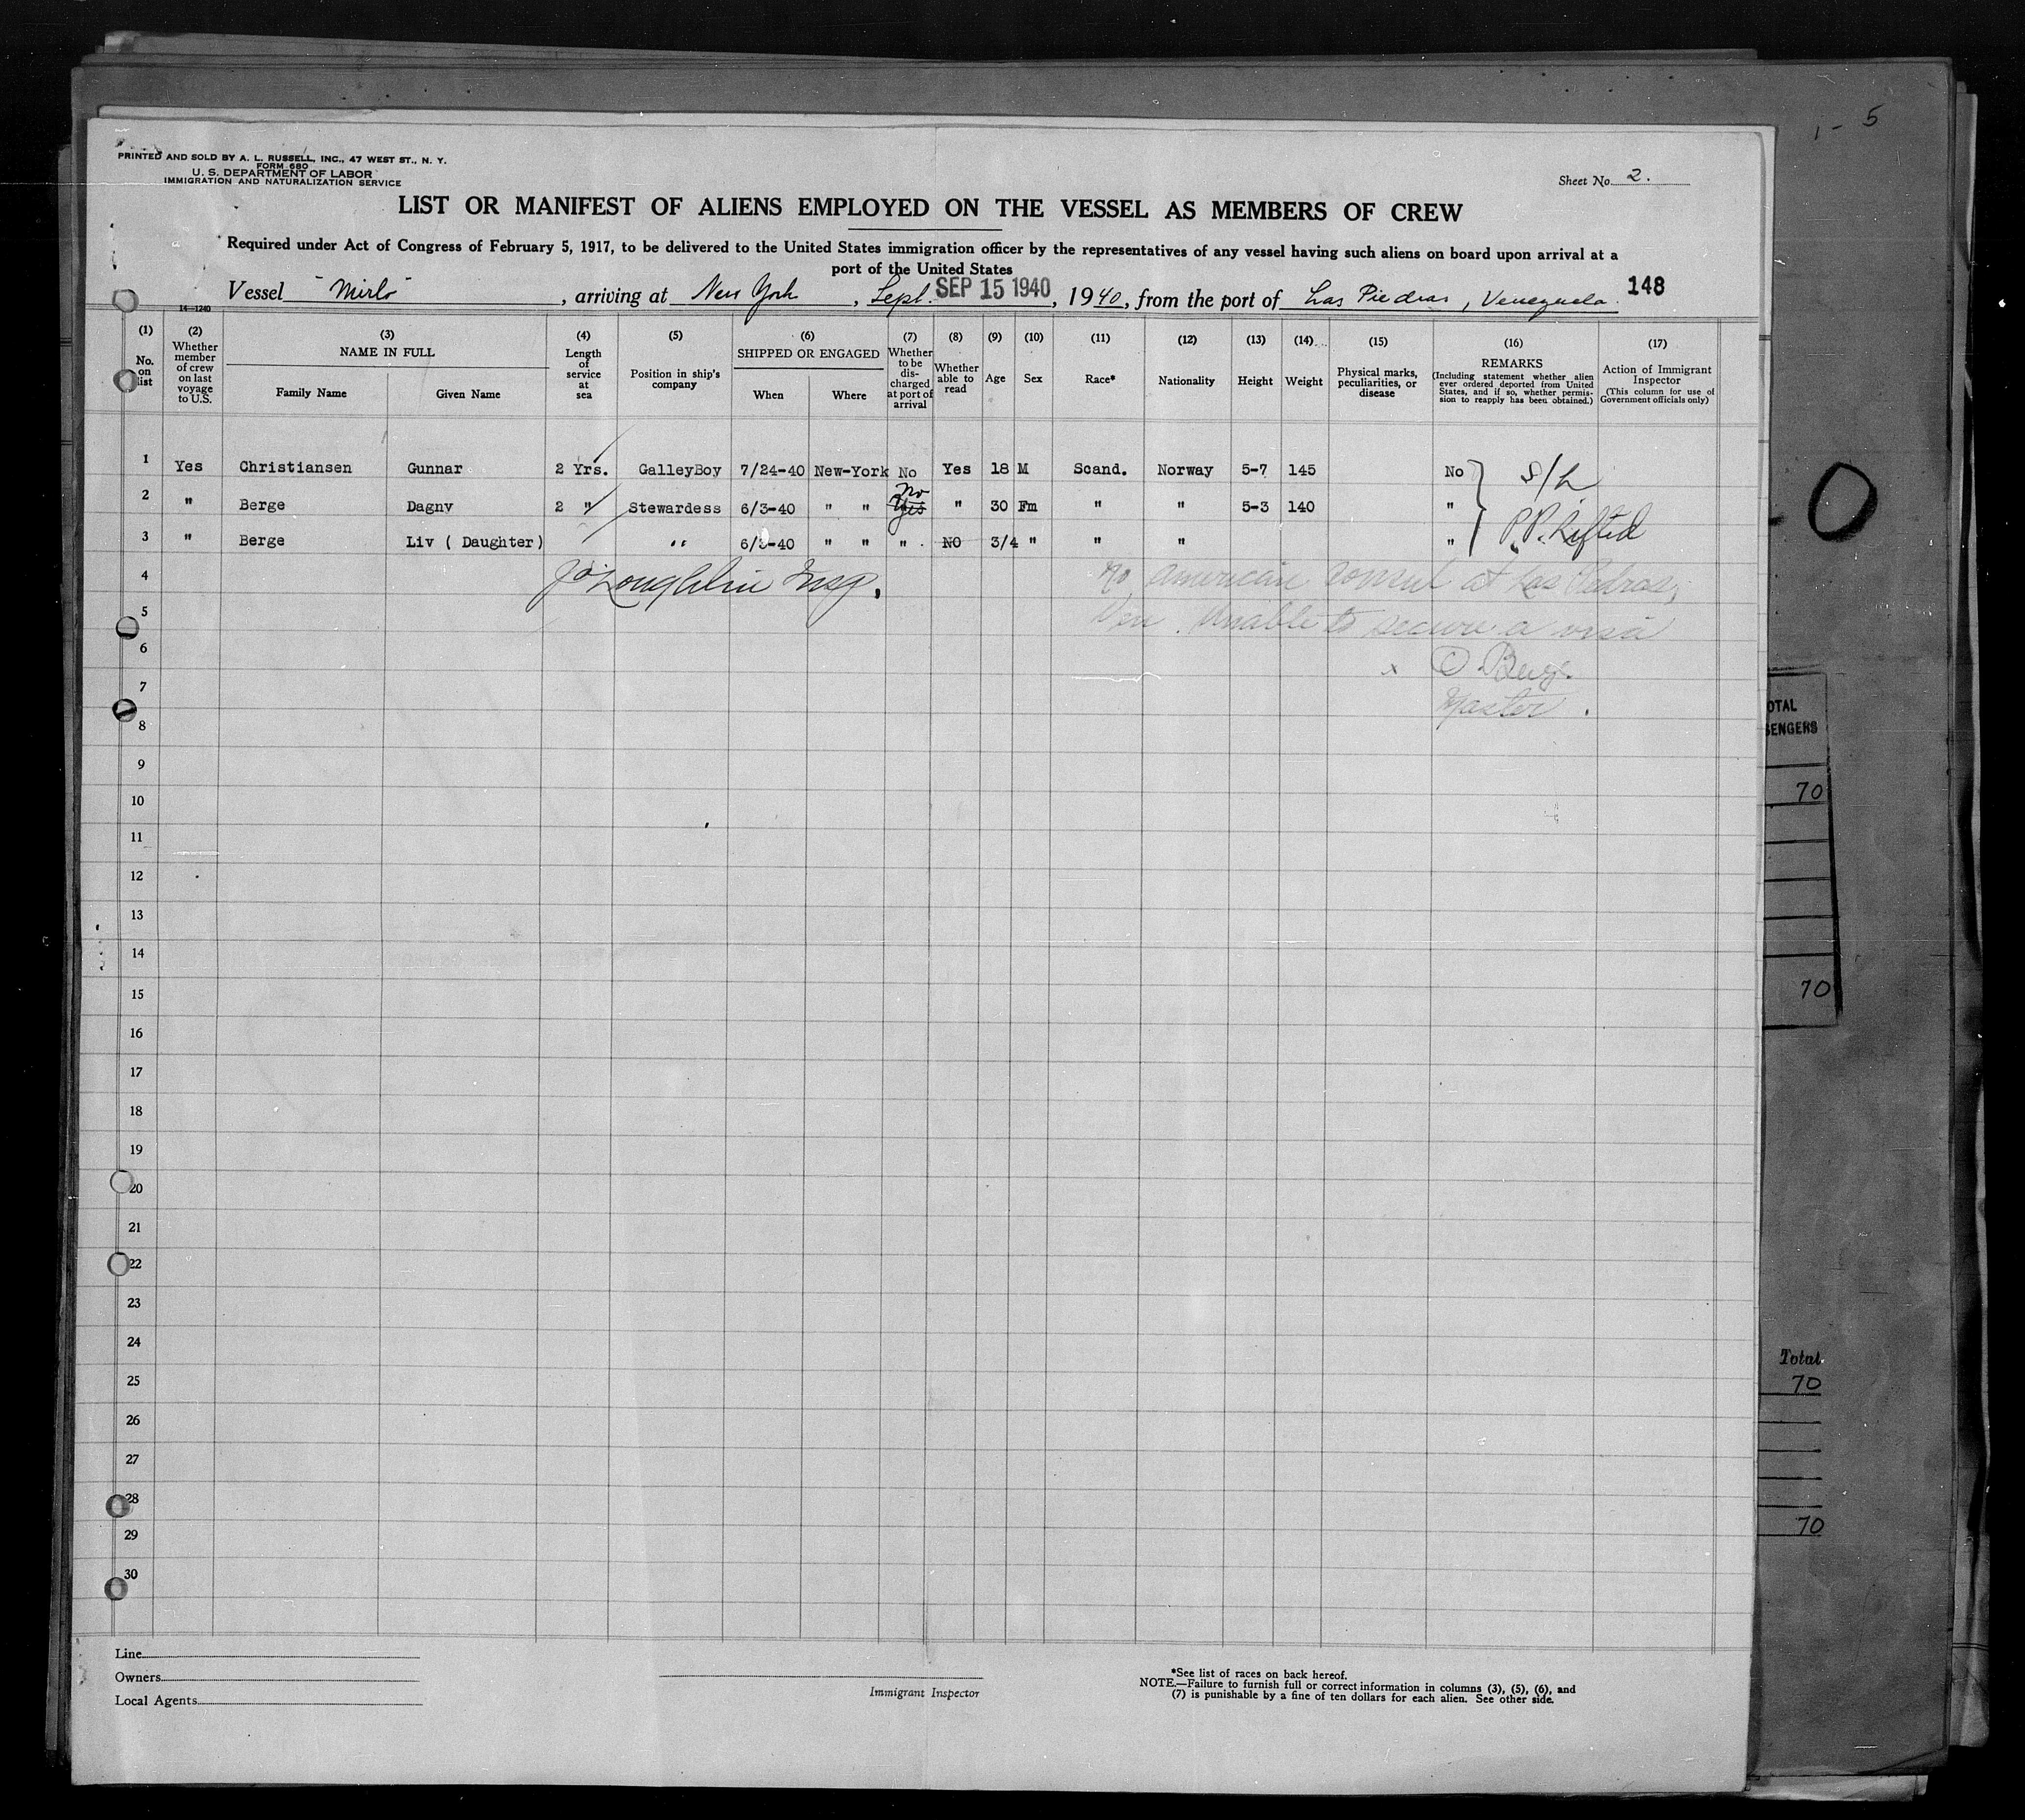 1 - 5
PRINTED AND SOLD BY A. L. RUSSELL, INC., 47 WEST ST., N. Y.
FORM 680
U. S. DEPARTMENT OF LABOR
IMMIGRATION AND NATURALIZATION SERVICE
Sheet No. 2.
LIST OR MANIFEST OF ALIENS EMPLOYED ON THE VESSEL AS MEMBERS OF CREW
Required under Act of Congress of February 5, 1917, to be delivered to the United States immigration officer by the representatives of any vessel having such aliens on board upon arrival at a
port of the United States
Vessel "Mirlo", arriving at New York, Sept. SEP 15 1940, 1940, from the port of Las Piedras, Venezuela. 148
14—1240
(1) No. on list
(2) Whether member of crew on last voyage to U.S.
(3) NAME IN FULL Family Name Given Name
(4) Length of service at sea
(5) Position in ship's company
(6) SHIPPED OR ENGAGED When Where
(7) Whether to be discharged at port of arrival
(8) Whether able to read
(9) Age
(10) Sex
(11) Race*
(12) Nationality
(13) Height
(14) Weight
(15) Physical marks, peculiarities, or disease
(16) REMARKS (Including statement whether alien ever ordered deported from United States, and if so, whether permission to reapply has been obtained.)
(17) Action of Immigrant Inspector (This column for use of Government officials only)
1 Yes Christiansen Gunnar 2 Yrs. GalleyBoy 7/24-40 New-York No Yes 18 M Scand. Norway 5-7 145 No S/L
2 " Berge Dagny 2 " Stewardess 6/3-40 " " No Yes " 30 Fm " " 5-3 140 "
3 " Berge Liv ( Daughter) " 6/3-40 " " " NO 3/4 " " " " P.P. Lifted
4 J O'Loughlin Insp. No American Consul at Las Piedras,
5 Ven. Unable to secure a visa
6 x O Berge
7 Master.
8
9
10
11
12
13
14
15
16
17
18
19
20
21
22
23
24
25
26
27
28
29
30
OTAL
SENGERS
70
70
Total
70
70
Line
Owners
Local Agents
Immigrant Inspector
*See list of races on back hereof.
NOTE.—Failure to furnish full or correct information in columns (3), (5), (6), and
(7) is punishable by a fine of ten dollars for each alien. See other side.